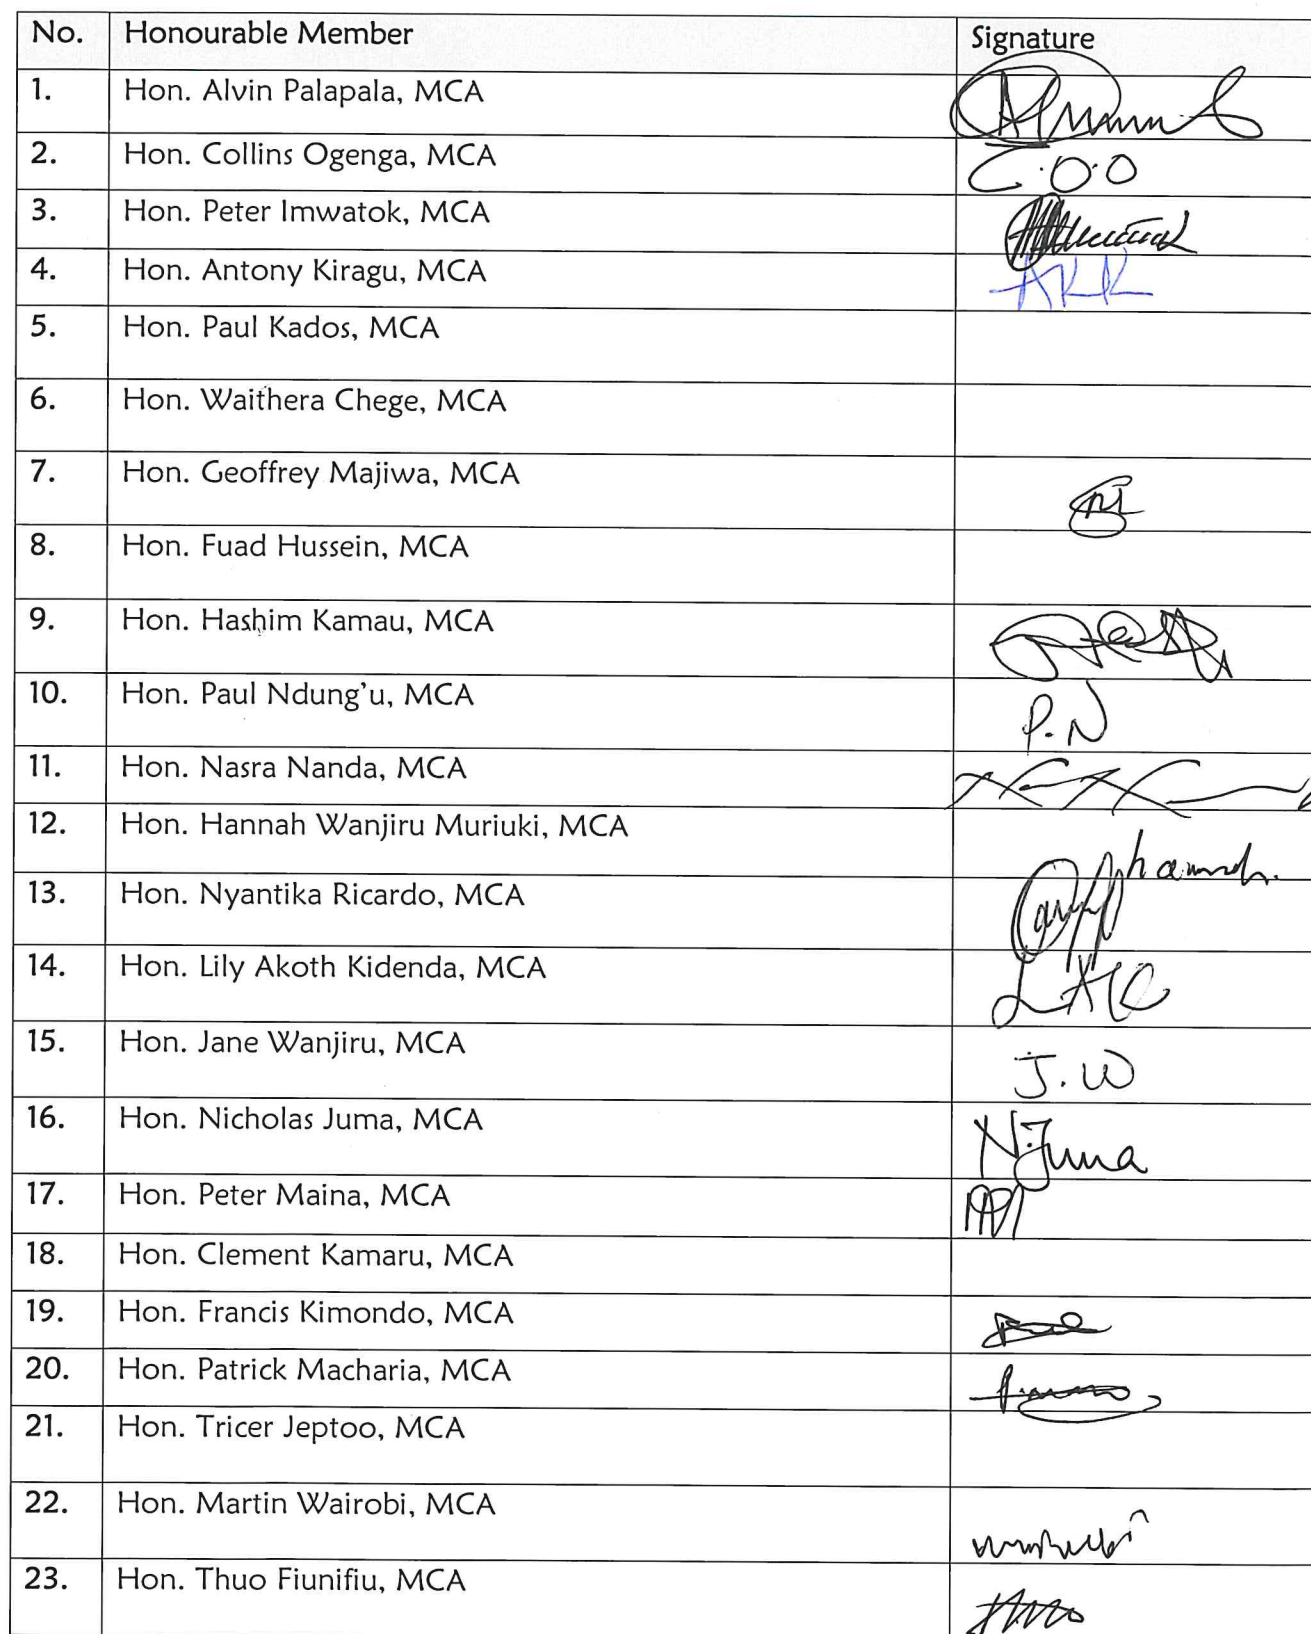 No. Honourable Member Signature
1. Hon. Alvin Palapala, MCA
2. Hon. Collins Ogenga, MCA C.O.O
3. Hon. Peter Imwatok, MCA
4. Hon. Antony Kiragu, MCA AKK
5. Hon. Paul Kados, MCA
6. Hon. Waithera Chege, MCA
7. Hon. Geoffrey Majiwa, MCA
8. Hon. Fuad Hussein, MCA
9. Hon. Hashim Kamau, MCA
10. Hon. Paul Ndung'u, MCA P.N
11. Hon. Nasra Nanda, MCA
12. Hon. Hannah Wanjiru Muriuki, MCA
13. Hon. Nyantika Ricardo, MCA
14. Hon. Lily Akoth Kidenda, MCA
15. Hon. Jane Wanjiru, MCA J.W
16. Hon. Nicholas Juma, MCA N.Juma
17. Hon. Peter Maina, MCA
18. Hon. Clement Kamaru, MCA
19. Hon. Francis Kimondo, MCA
20. Hon. Patrick Macharia, MCA
21. Hon. Tricer Jeptoo, MCA
22. Hon. Martin Wairobi, MCA
23. Hon. Thuo Fiunifiu, MCA